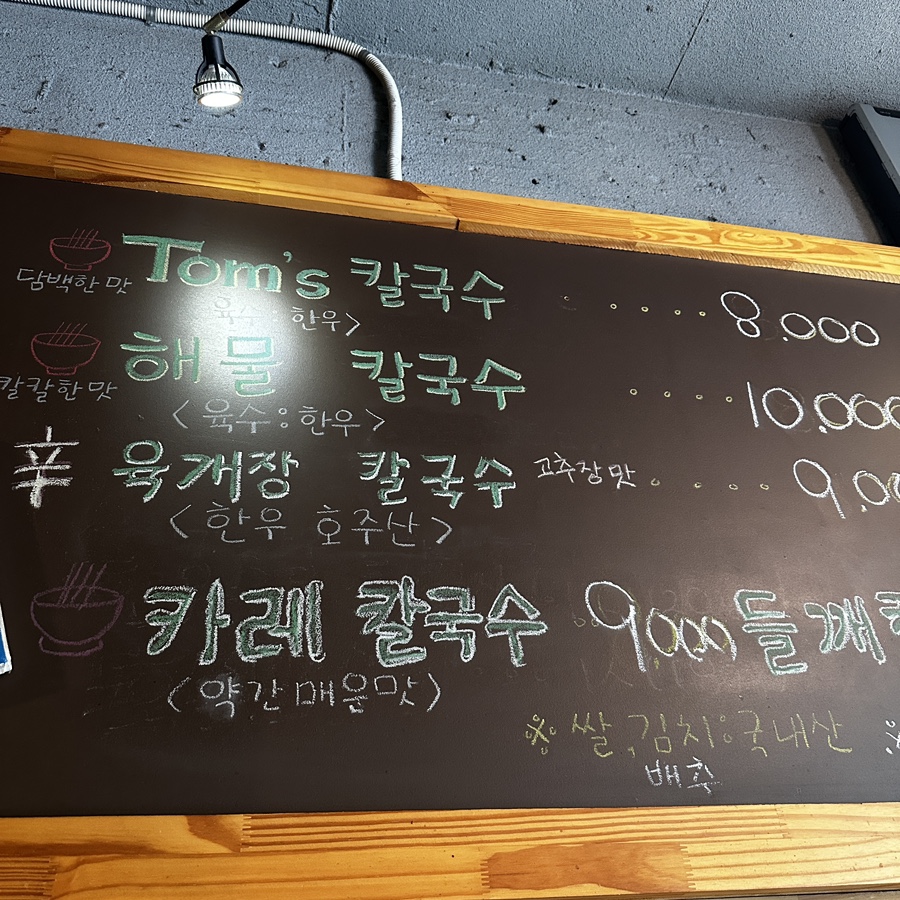 Tom's 칼국수 . . . . . 8.000
담백한 맛
육수 한우>
해물 칼국수 . . . . 10.000
칼칼한 맛
<육수:한우>
辛 육개장 칼국수 고추장맛 . . . . . 9.00
<한우 호주산>
카레 칼국수 9000 들깨
<약간매운맛>
※ 쌀, 김치:국내산 ※
배추